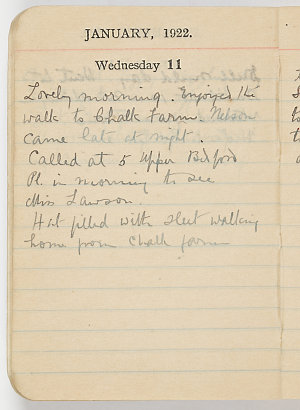 JANUARY, 1922.
Wednesday 11
Lovely morning. Enjoyed the
walk to Chalk Farm. Nelson
came late at night.
Called at 5 Upper Bedford
Pl. in morning to see
Miss Lawson.
Hat filled with sleet walking
home from Chalk farm